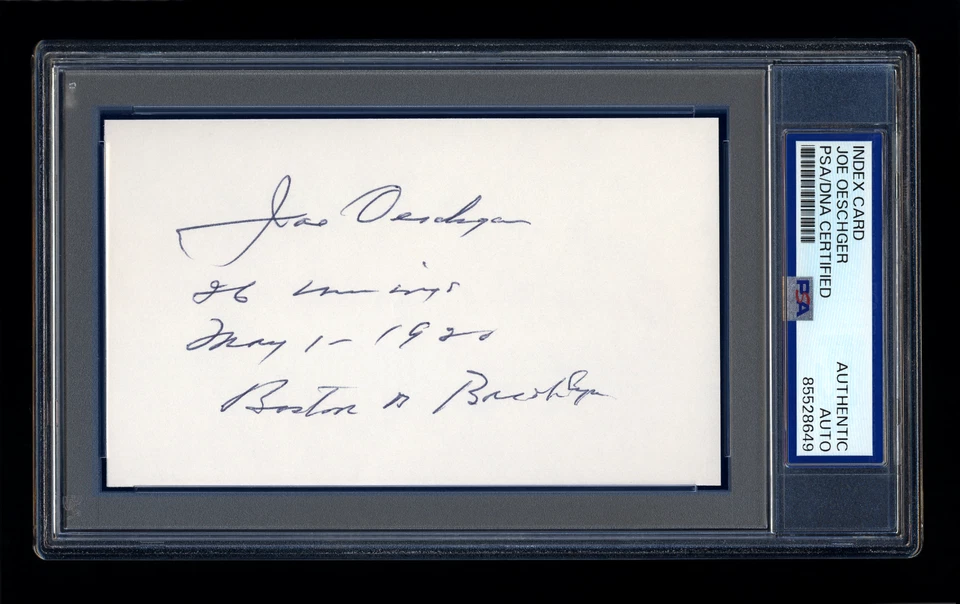 Joe Oeschger
26 innings
May 1 - 1920
Boston vs Brooklyn
INDEX CARD
JOE OESCHGER
PSA/DNA CERTIFIED
PSA
AUTHENTIC
AUTO
85528649